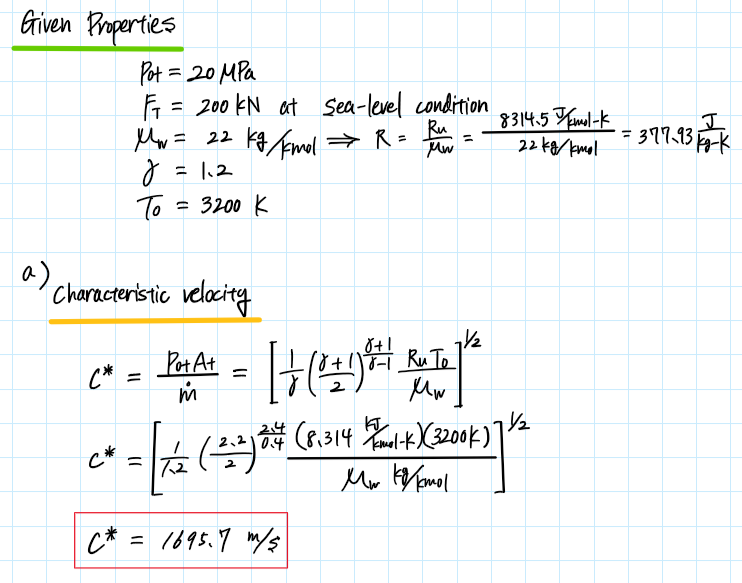 Given Properties
P₀t = 20 MPa
F_T = 200 kN at sea-level condition
μ_w = 22 kg/kmol ⟹ R = Ru/μ_w = (8314.5 J/kmol-K)/(22 kg/kmol) = 377.93 J/kg-K
γ = 1.2
T₀ = 3200 K
a) Characteristic velocity
C* = P₀t At/ṁ = [1/γ ((γ+1)/2)^((γ+1)/(γ-1)) Ru T₀/μ_w]^1/2
C* = [1/1.2 (2.2/2)^(2.4/0.4) (8.314 kJ/kmol-K)(3200K)/(μ_w kg/kmol)]^1/2
C* = 1695.7 m/s